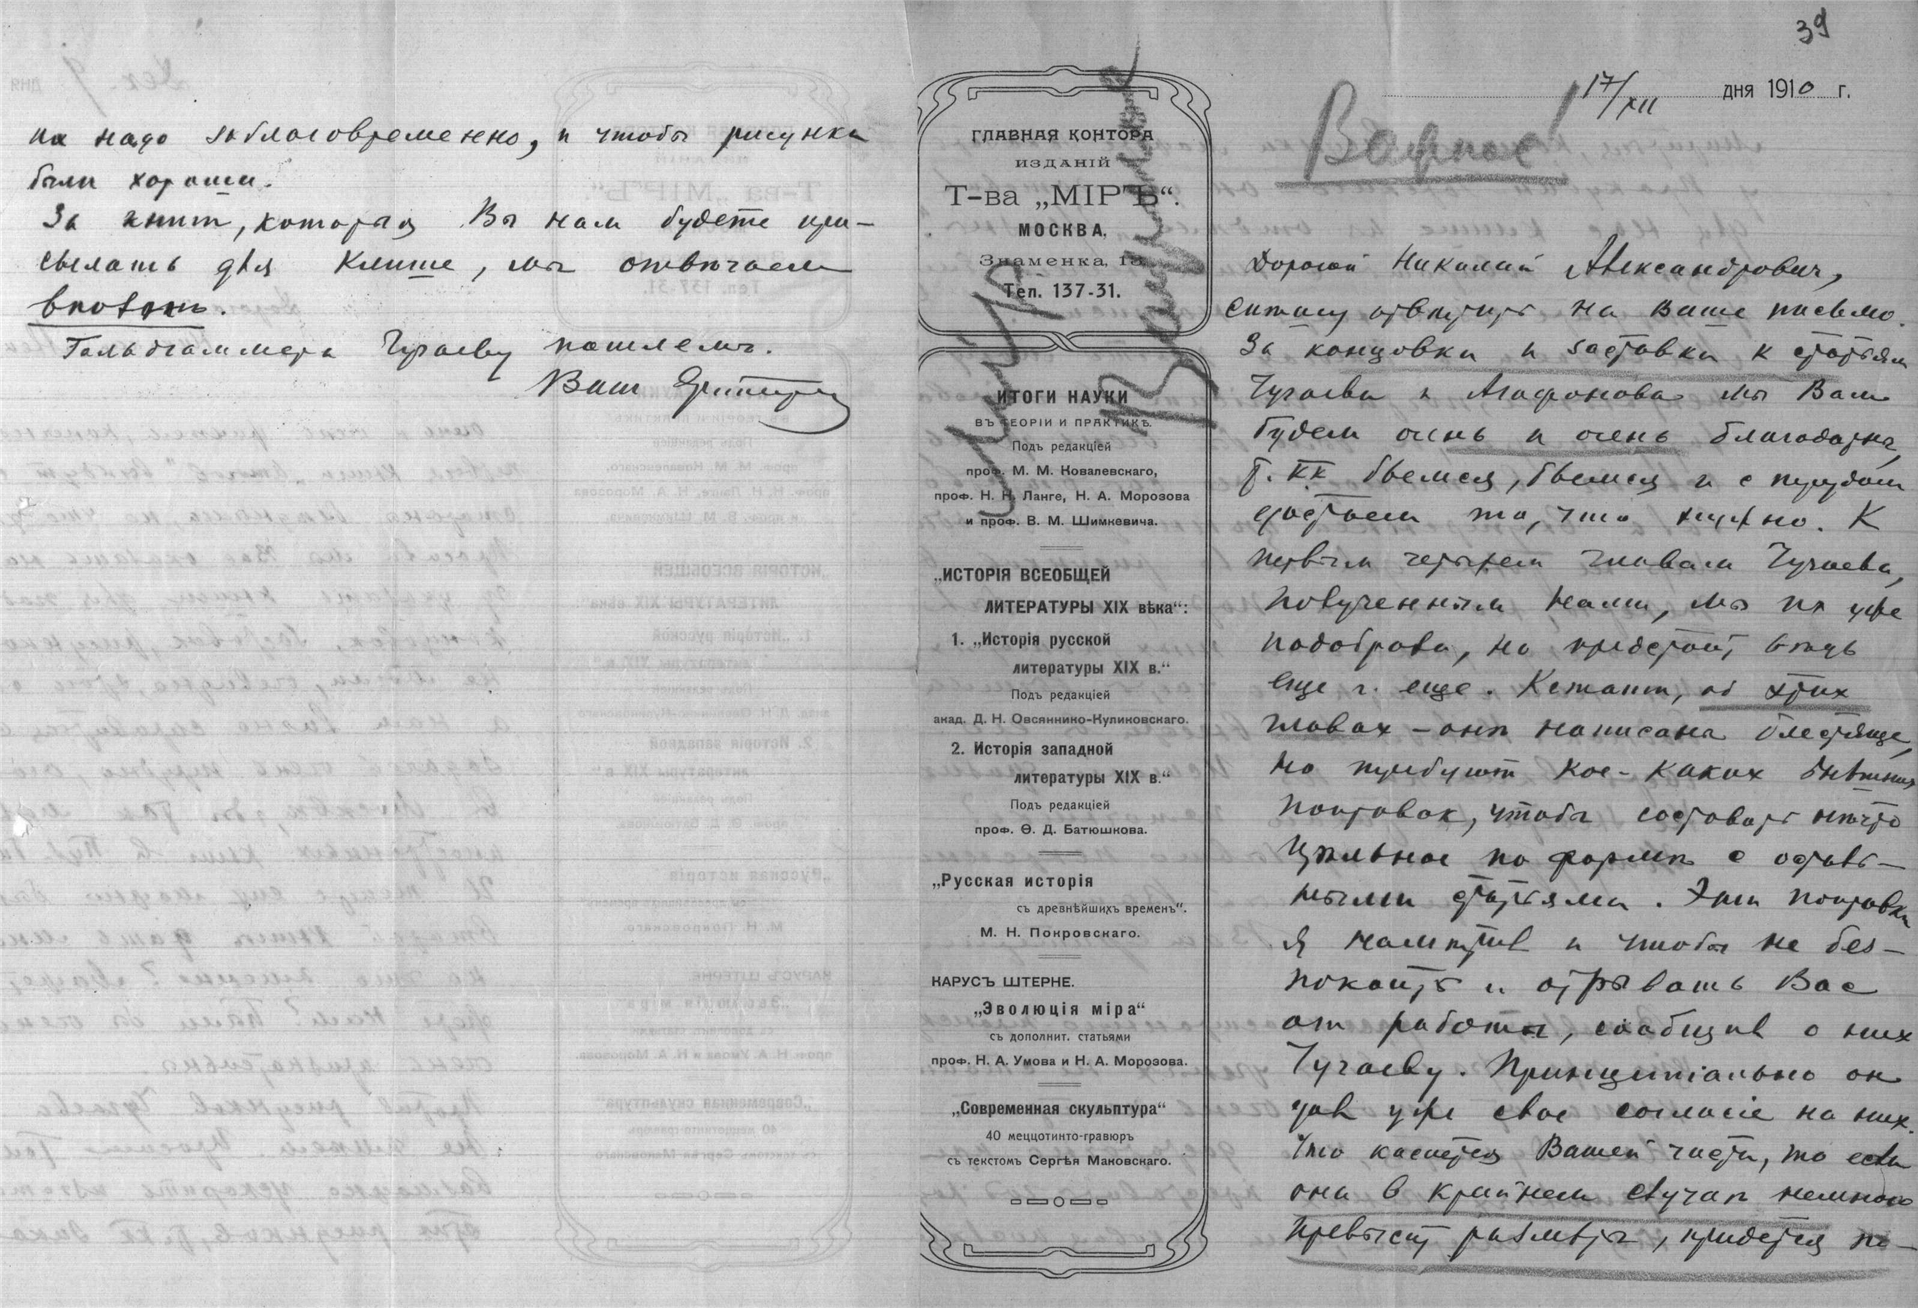 на надо заблаговременно, и чтобы рисунки
были хороши.
За книги, которыя Вы нам будете при-
сылать для клише, мы отвечаем
вполне.
Гольдгаммера Чугаеву пошлем.
Ваш
39
17/XII дня 1910 г.
Важное!
ГЛАВНАЯ КОНТОРА
ИЗДАНІЙ
Т-ва „МІРЪ“.
МОСКВА,
Знаменка, 1
Тел. 137-31.
ИТОГИ НАУКИ
ВЪ ТЕОРІИ И ПРАКТИКѢ.
Подъ редакціей
проф. М. М. Ковалевскаго,
проф. Н. Н. Ланге, Н. А. Морозова
и проф. В. М. Шимкевича.
„ИСТОРІЯ ВСЕОБЩЕЙ
ЛИТЕРАТУРЫ XIX вѣка“:
1. „Исторія русской
литературы XIX в.“
Подъ редакціей
акад. Д. Н. Овсяннико-Куликовскаго.
2. Исторія западной
литературы XIX в.“
Подъ редакціей
проф. Ѳ. Д. Батюшкова.
„Русская исторія
съ древнѣйшихъ временъ“.
М. Н. Покровскаго.
КАРУСЪ ШТЕРНЕ.
„Эволюція міра“
съ дополнит. статьями
проф. Н. А. Умова и Н. А. Морозова.
„Современная скульптура“
40 меццотинто-гравюръ
съ текстомъ Сергѣя Маковскаго.
Дорогой Николай Александрович,
Спешу ответить на Ваше письмо.
За концовки и заставки к статьям
Чугаева и Агафонова мы Вам
будем очень и очень благодарны,
т. кк бьемся, бьемся и с трудом
достаем то, что нужно. К
первым четырем главам Чугаева,
полученным нами, мы их уже
подобрали, но предстоит ведь
еще и еще. Кстати, об этих
главах – онѣ написаны блестяще,
но требуют кое-каких внѣшних
поправок, чтобы составить нѣчто
цѣльное по формѣ с осталь-
ными статьями. Эти поправки
я намѣтив и чтобы не без-
покоить и отрывать Вас
от работы, сообщив о них
Чугаеву. Принципіально он
дав уже свое согласіе на них.
Что касается Вашей части, то если
она в крайнем случаѣ немного
превысит размѣры, придется по-